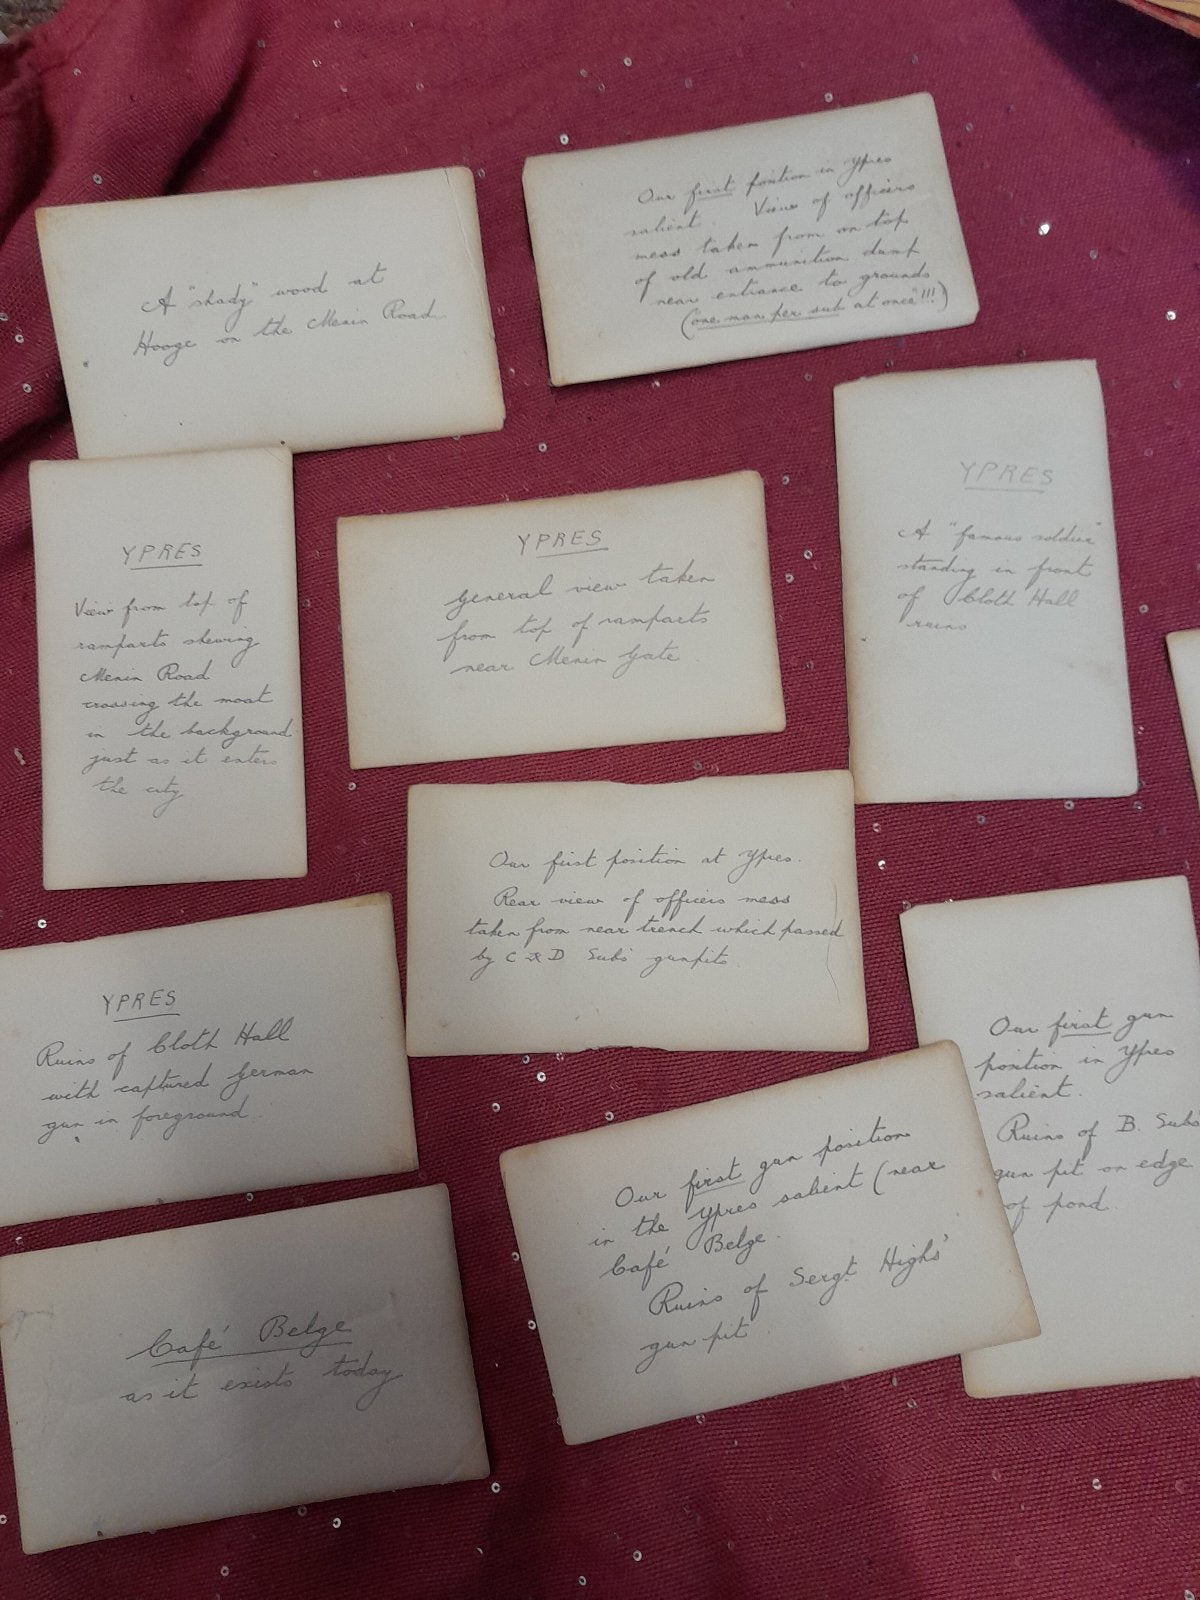 A "shady" wood at
Hooge on the Menin Road
Our first position in Ypres
salient. View of officers
mess taken from on top
of old ammunition dump
near entrance to grounds
(one man per sub at once"!!!)
YPRES
View from top of
ramparts shewing
Menin Road
crossing the moat
in the background
just as it enters
the city
YPRES
General view taken
from top of ramparts
near Menin Gate.
YPRES
A "famous soldier"
standing in front
of Cloth Hall
ruins
Our first position at Ypres.
Rear view of officers mess
taken from near trench which passed
by C & D Subs' gunpits.
YPRES
Ruins of Cloth Hall
with captured German
gun in foreground.
Our first gun
position in Ypres
salient.
Ruins of B. Subs
gun pit on edge
of pond.
Our first gun position
in the Ypres salient (near
Café Belge.
Ruins of Sergt. Highs'
gun pit
Café Belge
as it exists today